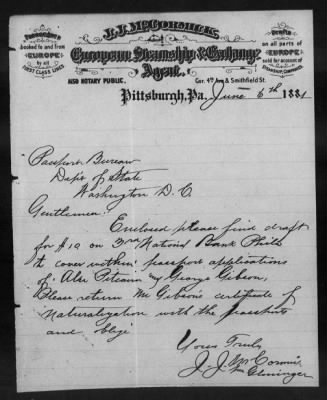 J. J. McCORMICK,
Passengers booked to and from EUROPE by all FIRST CLASS LINES
European Steamship & Exchange
Agent.
Drafts on all parts of EUROPE sold for account of
ALSO NOTARY PUBLIC.
Cor. 4th Ave & Smithfield St.
Pittsburgh, Pa. June 6th 1881
Passport Bureau
Dep't of State
Washington D. C.
Gentlemen
Enclosed please find draft
for $10 on 3rd National Bank Phila
to cover within passport applications
of Alex Pitcairn & George Gibson,
Please return Mr Gibson's certificate of
Naturalization with the passports
and oblige
Yours Truly
J. J. McCormick